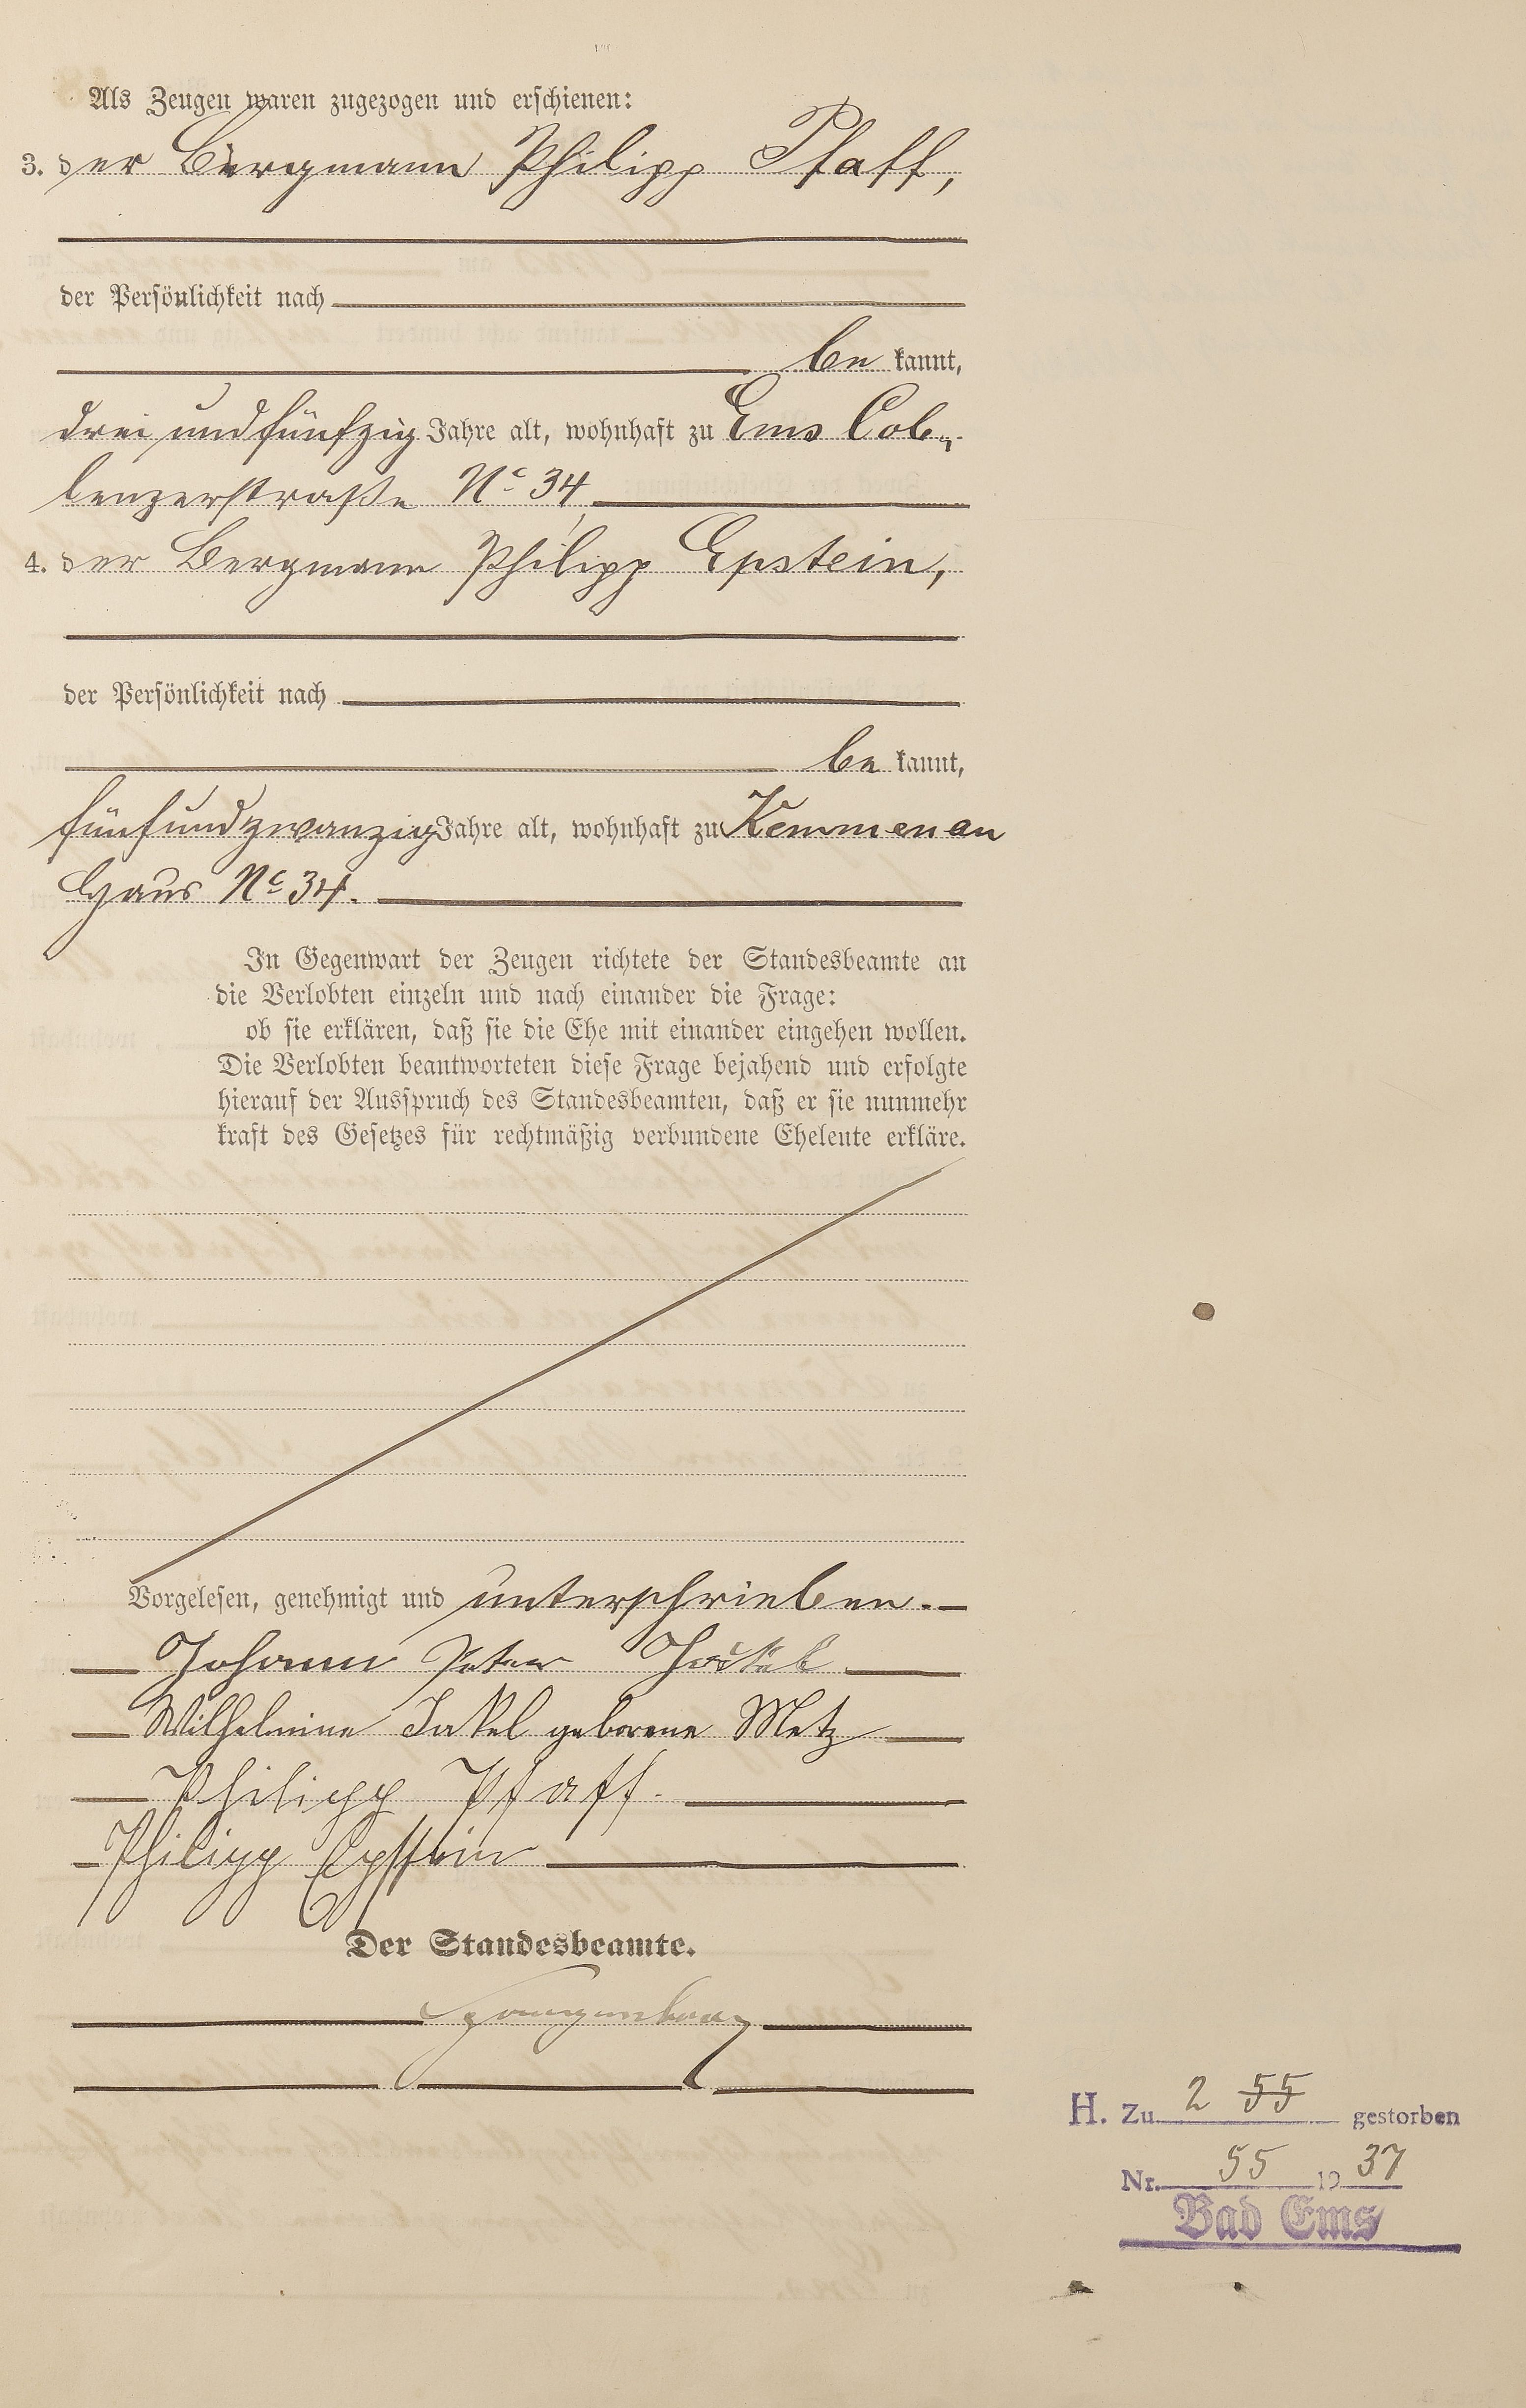 Als Zeugen waren zugezogen und erschienen:
3. der Bergmann Philipp Pfaff,
der Persönlichkeit nach
be kannt,
drei und fünfzig Jahre alt, wohnhaft zu Ems Cob-
lenzerstraße No 34,
4. der Bergmann Philipp Epstein,
der Persönlichkeit nach
be kannt,
fünfundzwanzig Jahre alt, wohnhaft zu Kemmenau
Haus No 34.
In Gegenwart der Zeugen richtete der Standesbeamte an
die Verlobten einzeln und nach einander die Frage:
ob sie erklären, daß sie die Ehe mit einander eingehen wollen.
Die Verlobten beantworteten diese Frage bejahend und erfolgte
hierauf der Ausspruch des Standesbeamten, daß er sie nunmehr
kraft des Gesetzes für rechtmäßig verbundene Eheleute erkläre.
Vorgelesen, genehmigt und unterschrieben.
Johann Peter
Wilhelmine geborene Metz
Philipp Pfaff.
Philipp Epstein
Der Standesbeamte.
H. Zu 2 55 gestorben
Nr. 55 1937
Bad Ems